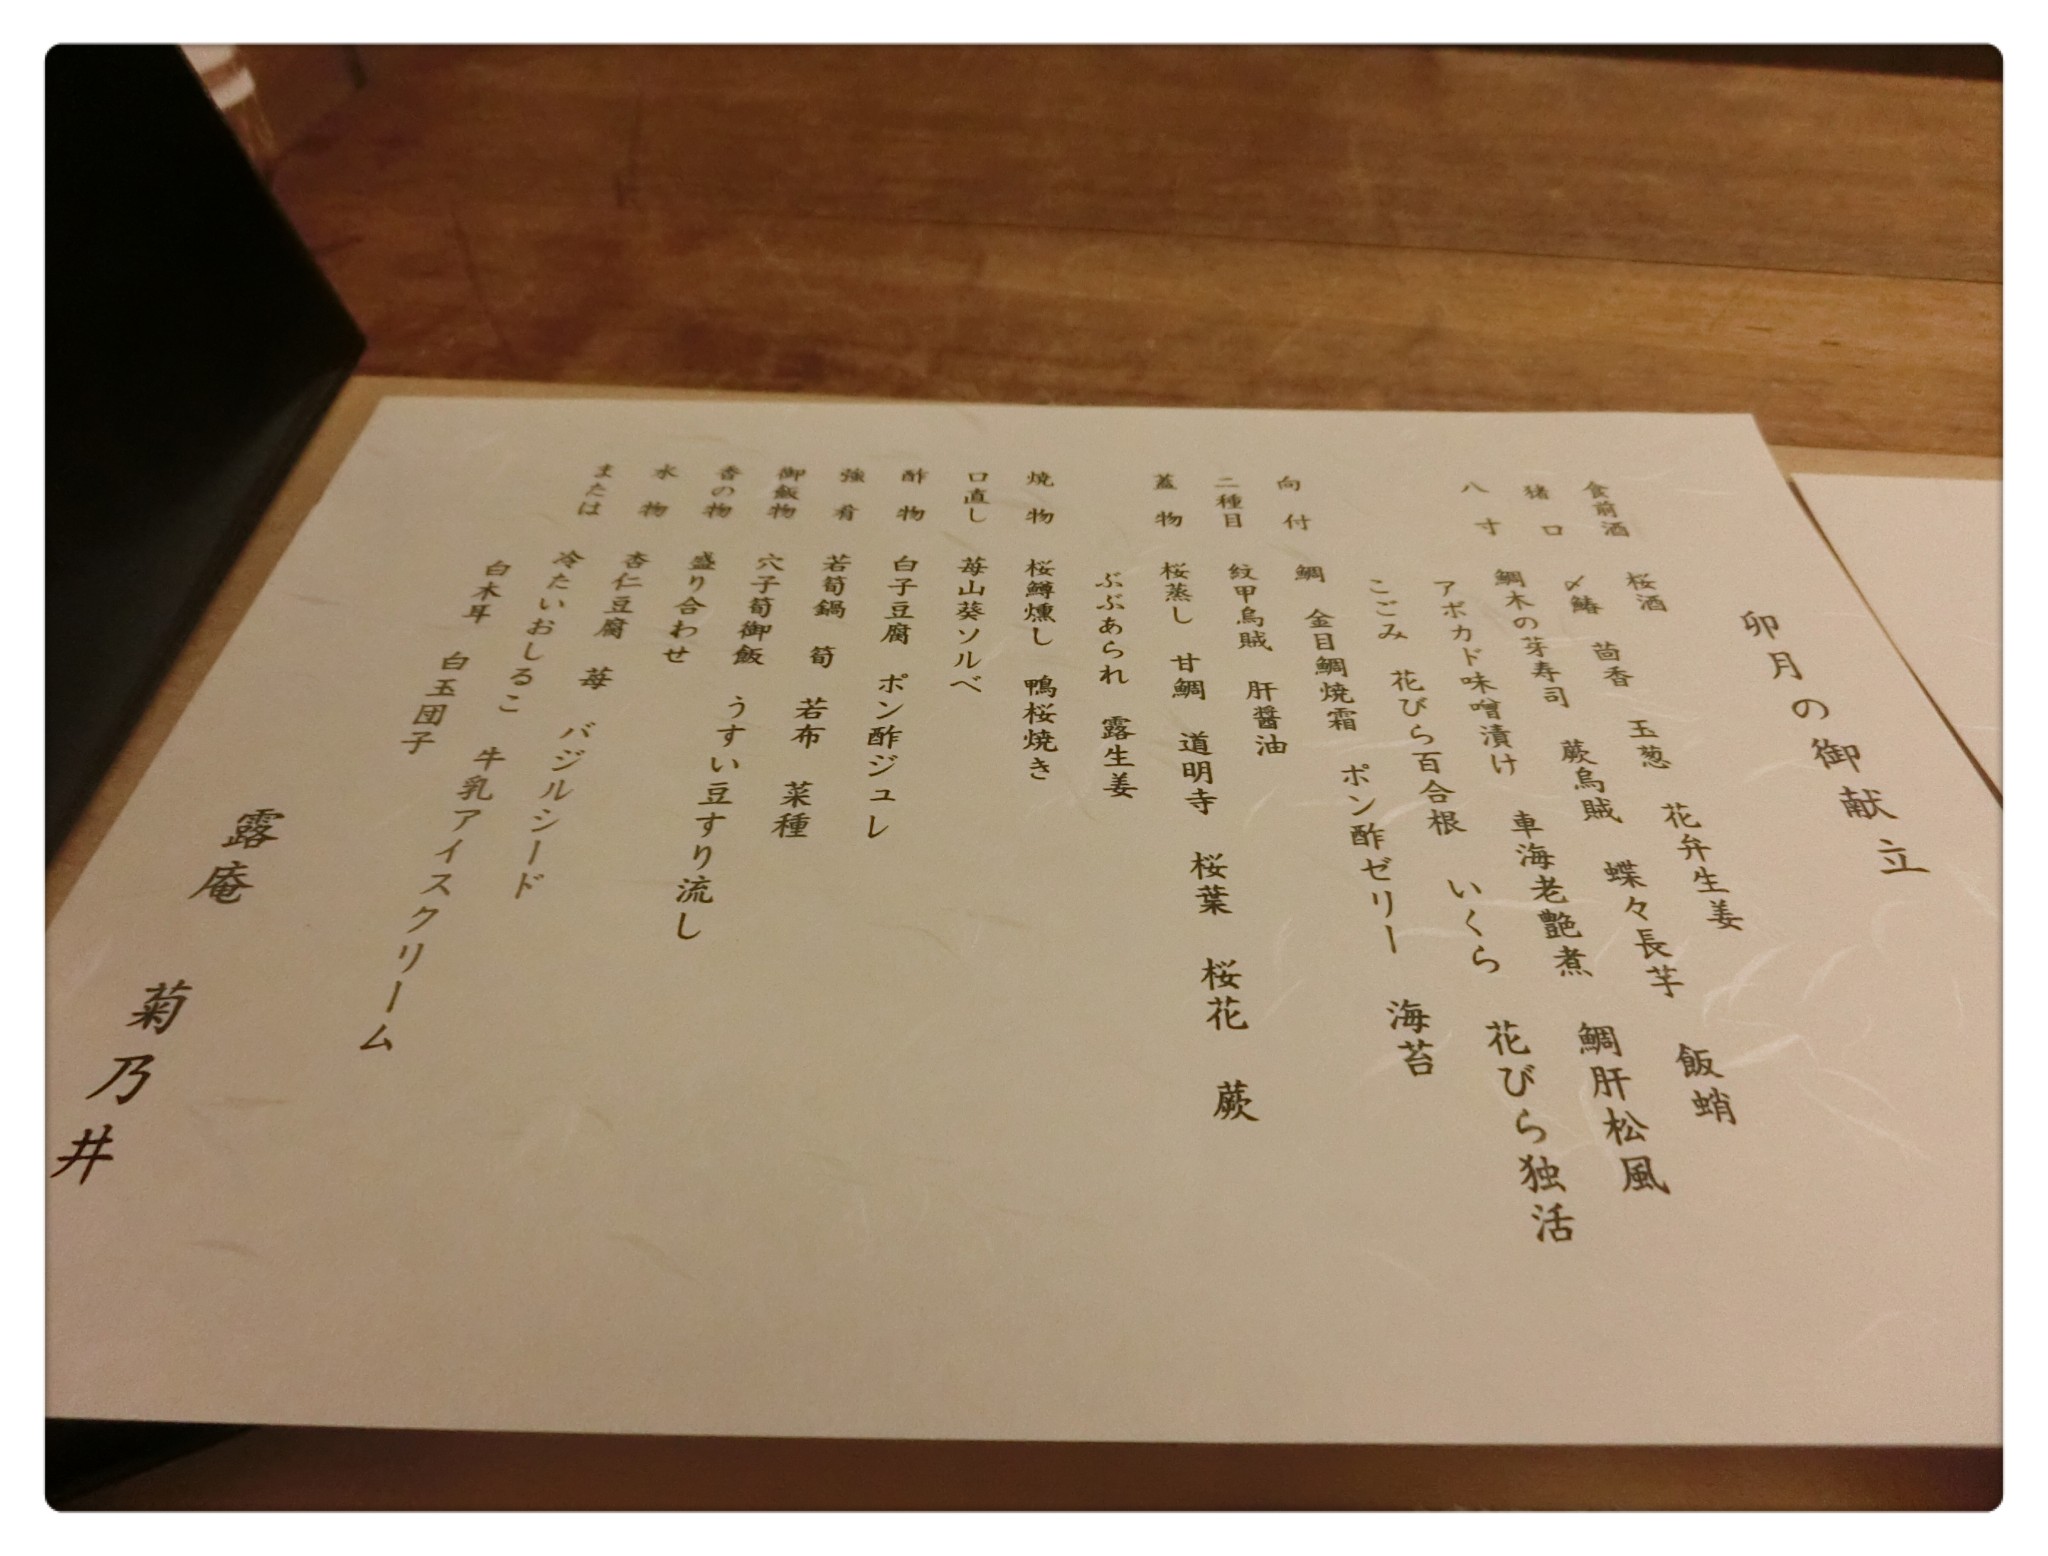 卯月の御献立
食前酒 桜酒
猪口 〆鰆 茴香 玉葱 花弁生姜
八寸 鯛木の芽寿司 蕨烏賊 蝶々長芋 飯蛸
アボカド味噌漬け 車海老艶煮 鯛肝松風
こごみ 花びら百合根 いくら 花びら独活
向付 鯛 金目鯛焼霜 ポン酢ゼリー 海苔
二種目 紋甲烏賊 肝醤油
蓋物 桜蒸し 甘鯛 道明寺 桜葉 桜花 蕨
ぶぶあられ 露生姜
焼物 桜鱒燻し 鴨桜焼き
口直し 苺山葵ソルベ
酢物 白子豆腐 ポン酢ジュレ
強肴 若筍鍋 筍 若布 菜種
御飯物 穴子筍御飯 うすい豆すり流し
香の物 盛り合わせ
水物 杏仁豆腐 苺 バジルシード
または 冷たいおしるこ 牛乳アイスクリーム
白木耳 白玉団子
露庵 菊乃井